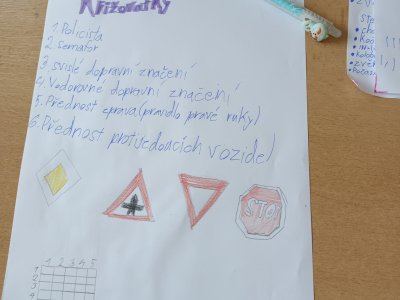 Křižovatky
1. Policista
2 semafor
3 svislé dopravní značení
4. Vodorovné dopravní značení
5. Přednost zprava (pravidlo pravé ruky)
6. Přednost protijedoucích vozidel
STOP
1 2 3 4 5
1
2
3
4